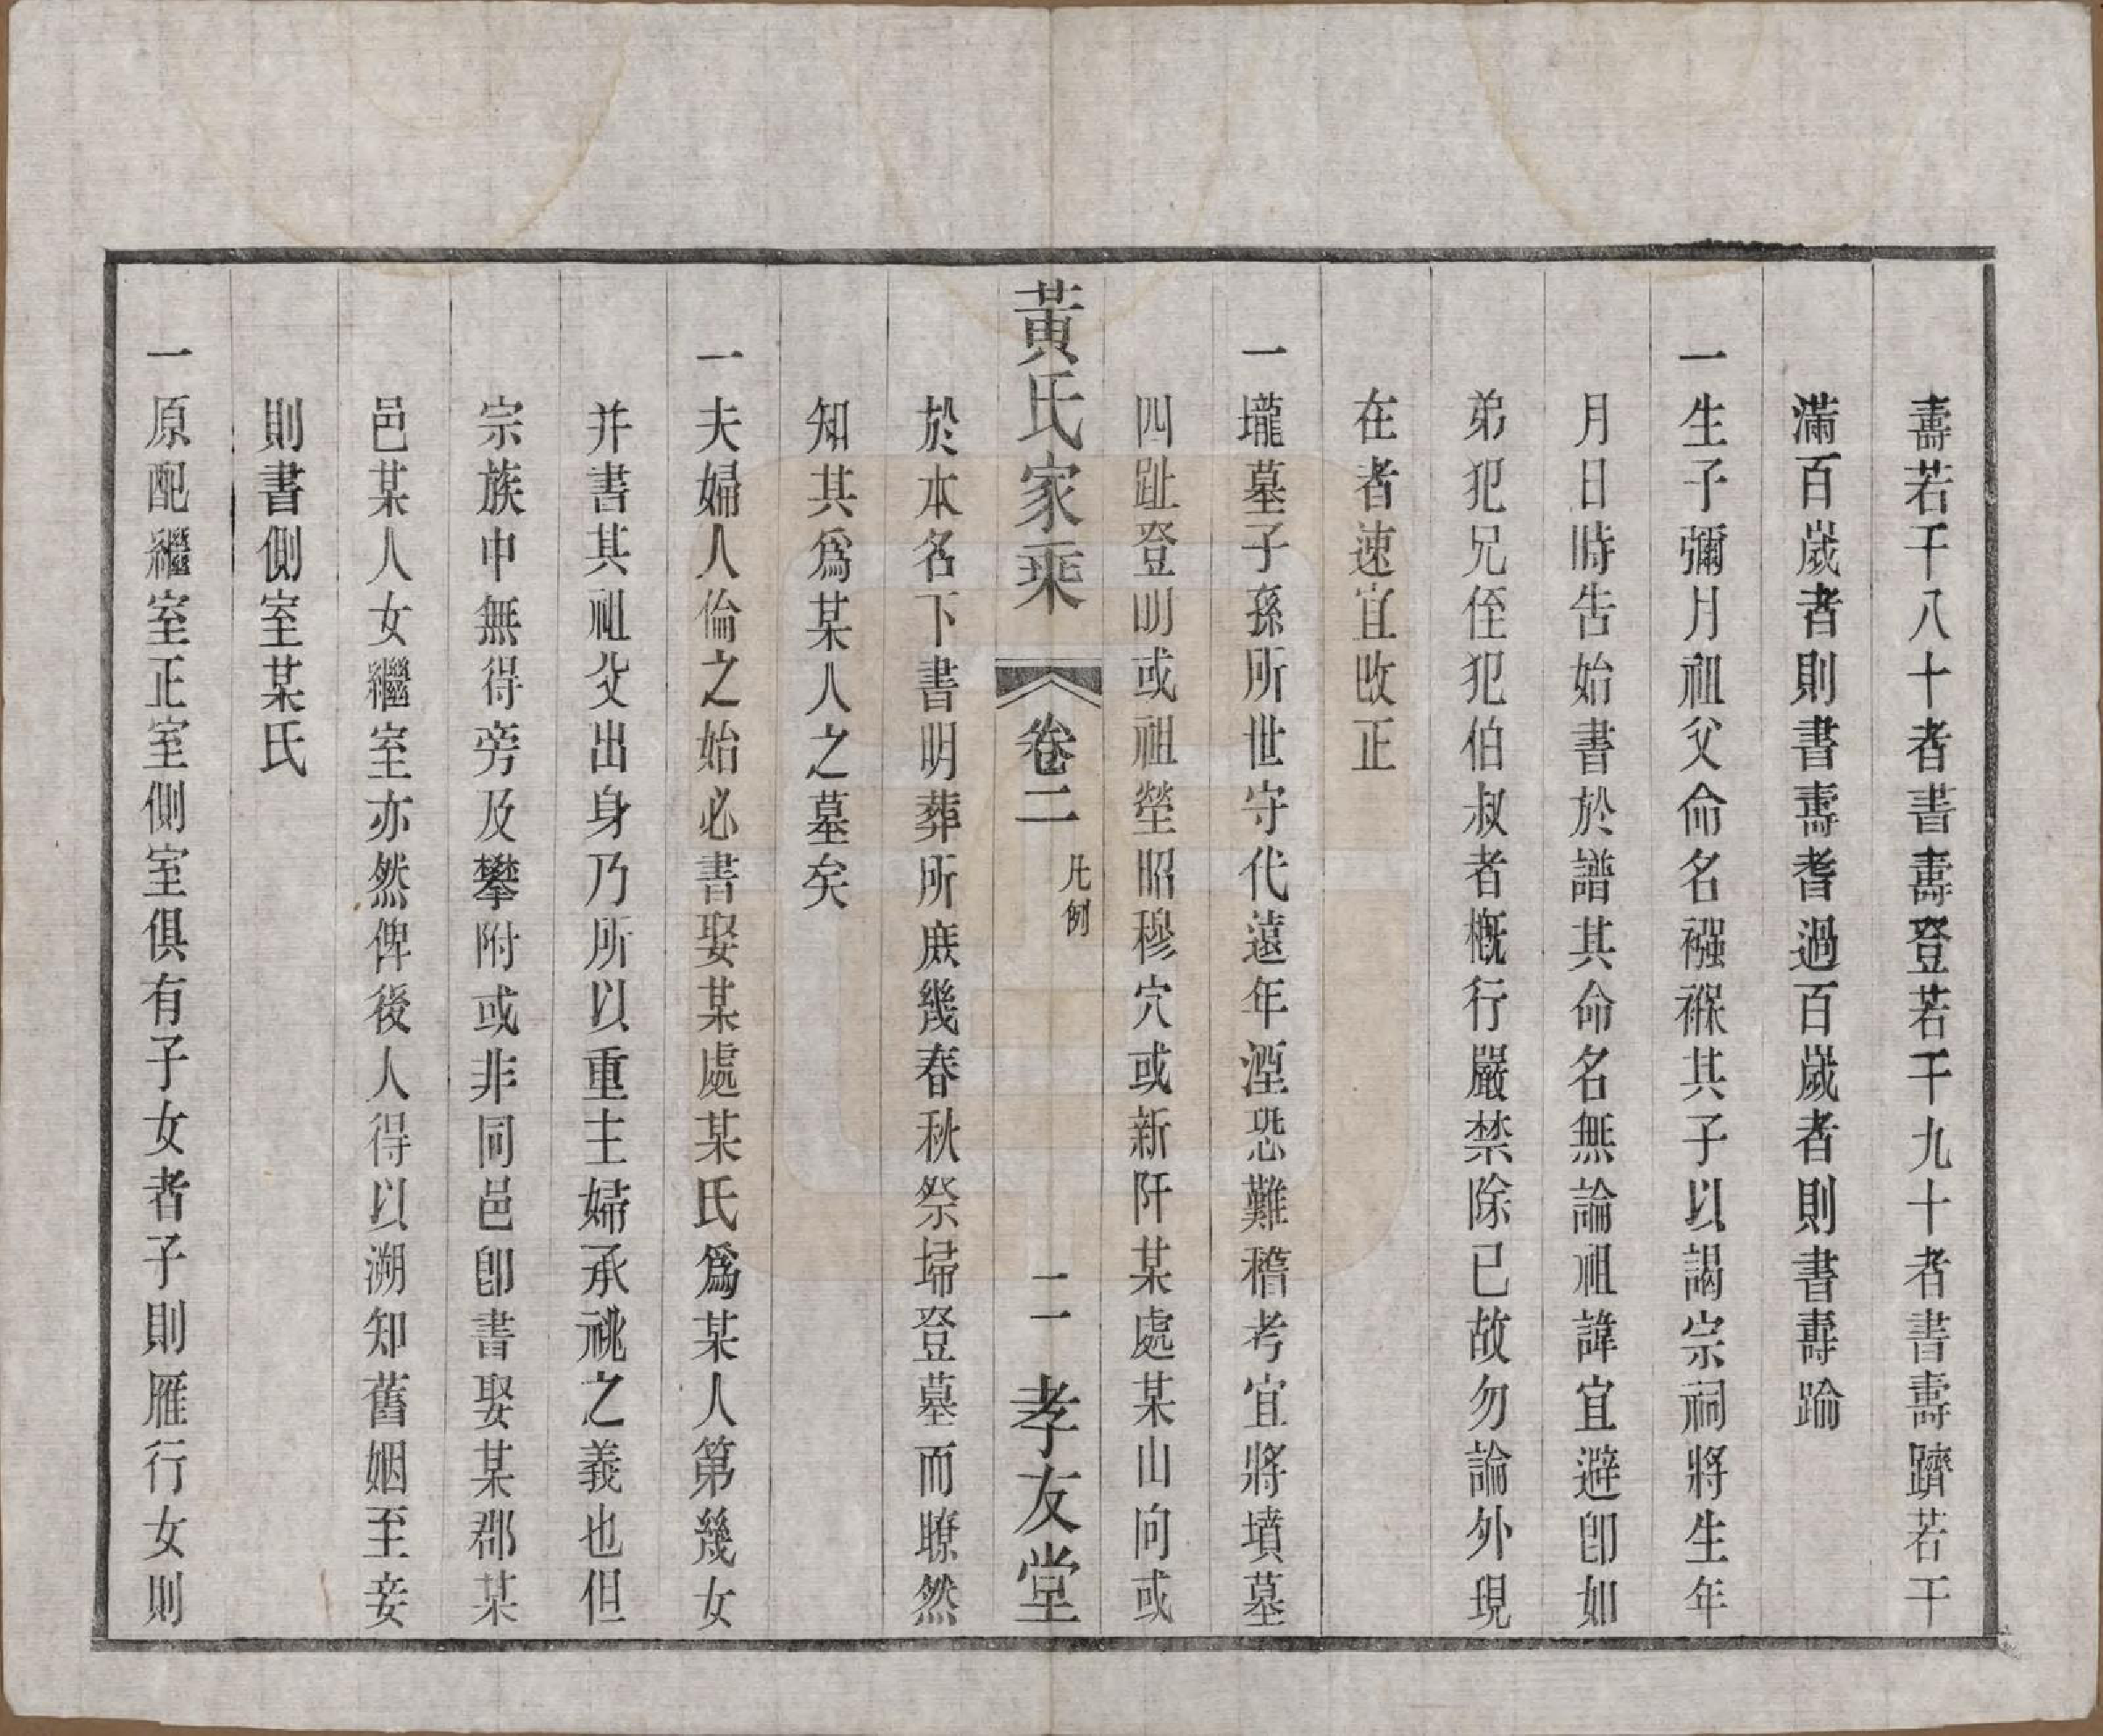 壽若干八十者書壽登若干九十者書壽躋若干
滿百歲者則書壽耆過百歲者則書壽踰
一生子彌月祖父命名襁褓其子以謁宗祠將生年
月日時告始書於譜其命名無論祖諱宜避卽如
弟犯兄侄犯伯叔者槪行嚴禁除已故勿論外現
在者速宜改正
一壠墓子孫所世守代遠年湮恐難稽考宜將墳墓
四趾登明或祖塋昭穆穴或新阡某處某山向或
黃氏家乘
卷二
凡例
二
孝友堂
於本名下書明葬所庶幾春秋祭埽登墓而瞭然
知其爲某人之墓矣
一夫婦人倫之始必書娶某處某氏爲某人第幾女
并書其祖父出身乃所以重主婦承祧之義也但
宗族中無得旁及攀附或非同邑卽書娶某郡某
邑某人女繼室亦然俾後人得以溯知舊姻至妾
則書側室某氏
一原配繼室正室側室俱有子女者子則雁行女則